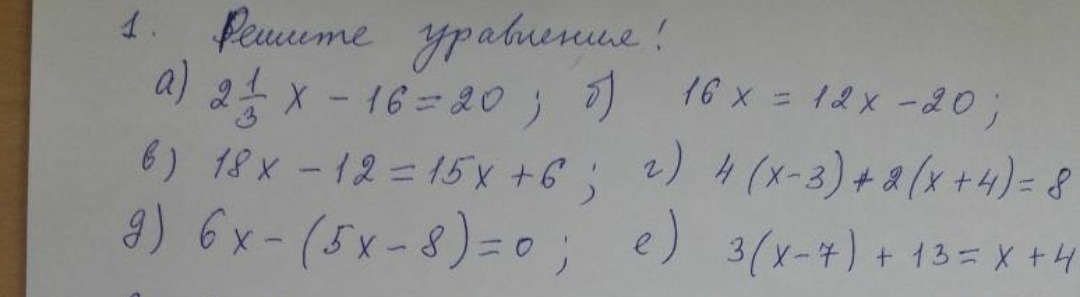 1. Решите уравнения!
а) 2 1/3 x - 16 = 20 ; б) 16x = 12x - 20 ;
в) 18x - 12 = 15x + 6 ; г) 4(x-3) + 2(x+4) = 8
д) 6x - (5x - 8) = 0 ; е) 3(x-7) + 13 = x + 4